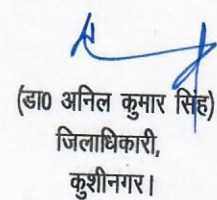 (डा0 अनिल कुमार सिंह)
जिलाधिकारी,
कुशीनगर।